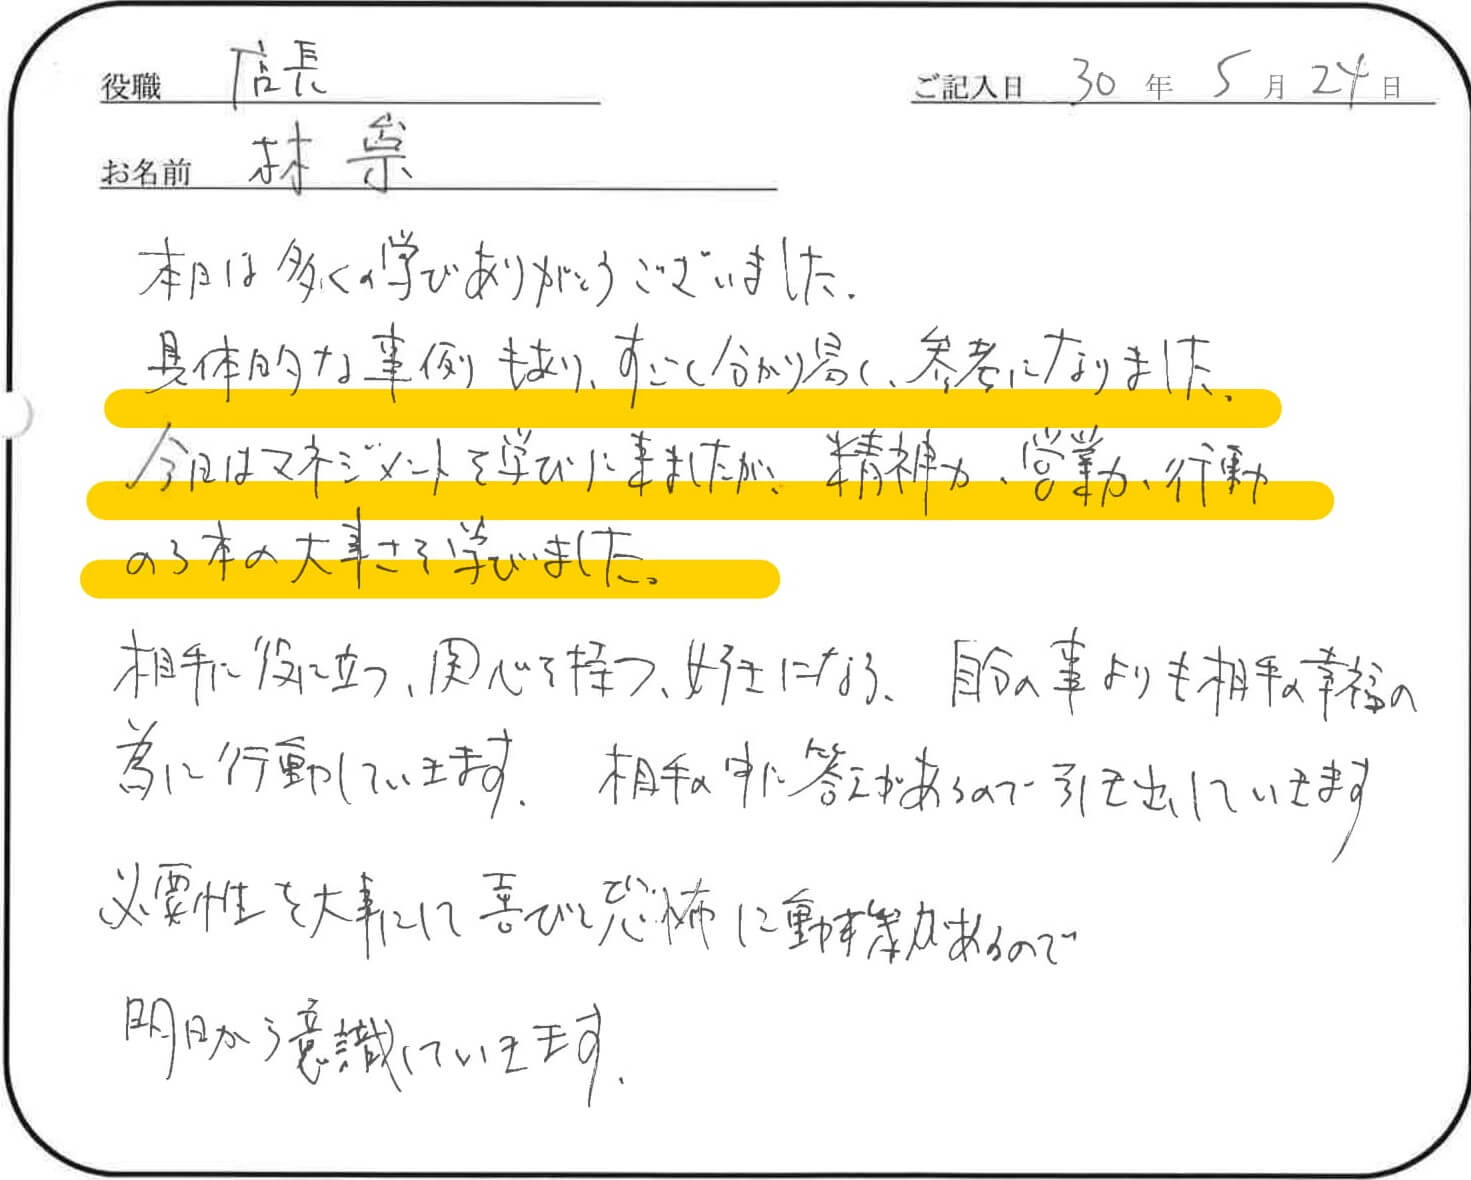 役職 店長
ご記入日 30年 5月 24日
お名前 林
本日は多くの学びありがとうございました.
具体的な事例もあり、すごく分かり易く、参考になりました。
今日はマネジメントを学びに来ましたが、精神力、営業力、行動
の3本の大事さを学びました。
相手に役に立つ、関心を持つ、好きになる、自分の事よりも相手の幸福の
為に行動していきます. 相手の中に答えがあるので引き出していきます
必要性を大事にして喜びと恐怖に動機があるので
明日から意識していきます.